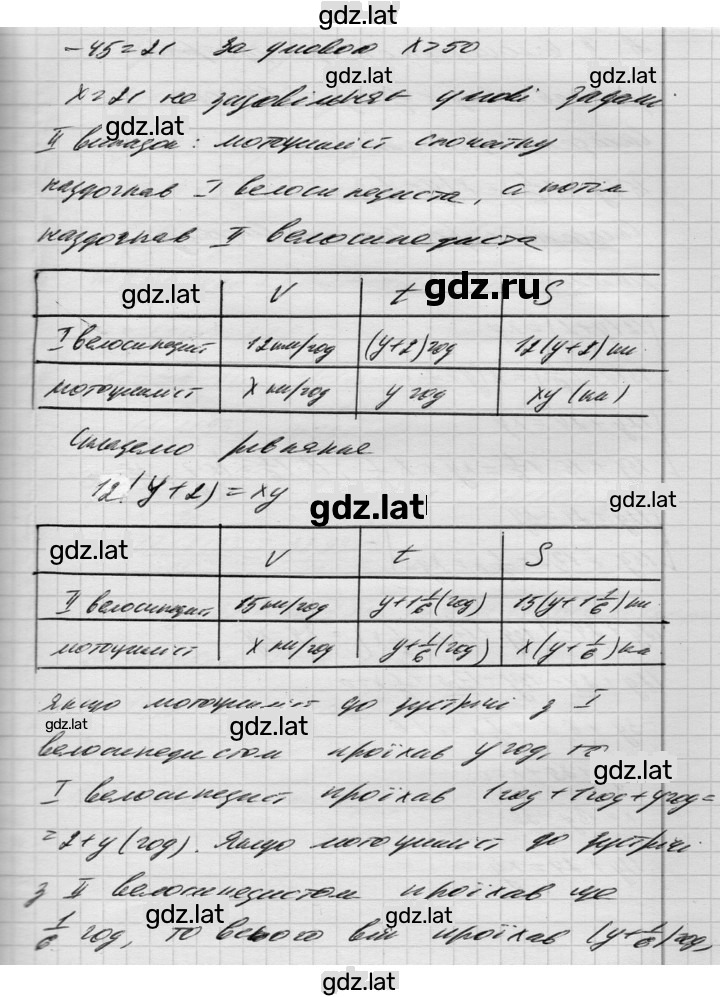 gdz.lat
-45=21 За умовою x>50
gdz.lat
x=21 не задовільняє умові задачі
gdz.lat
II випадок: мотоцикліст спочатку
наздогнав I велосипедиста, а потім
наздогнав II велосипедиста
gdz.lat V t gdz.ru S
I велосипедист 12км/год (y+2)год 12(y+2)км
мотоцикліст x км/год y год xy (км)
Складемо рівняння
12(y+2)=xy
gdz.lat gdz.lat
gdz.lat V t S
II велосипедист 15км/год y+1 1/6(год) 15(y+1 1/6)км
мотоцикліст x км/год y+1/6(год) x(y+1/6)км
Якщо мотоцикліст до зустрічі з I
gdz.lat gdz.lat
велосипедистом проїхав y год, то
gdz.lat
I велосипедист проїхав 1год+1год+yгод=
=2+y(год). Якщо мотоцикліст до зустрічі
з II велосипедистом проїхав ще
gdz.lat gdz.lat
1/6 год, то всього він проїхав (y+1/6)год,
gdz.lat